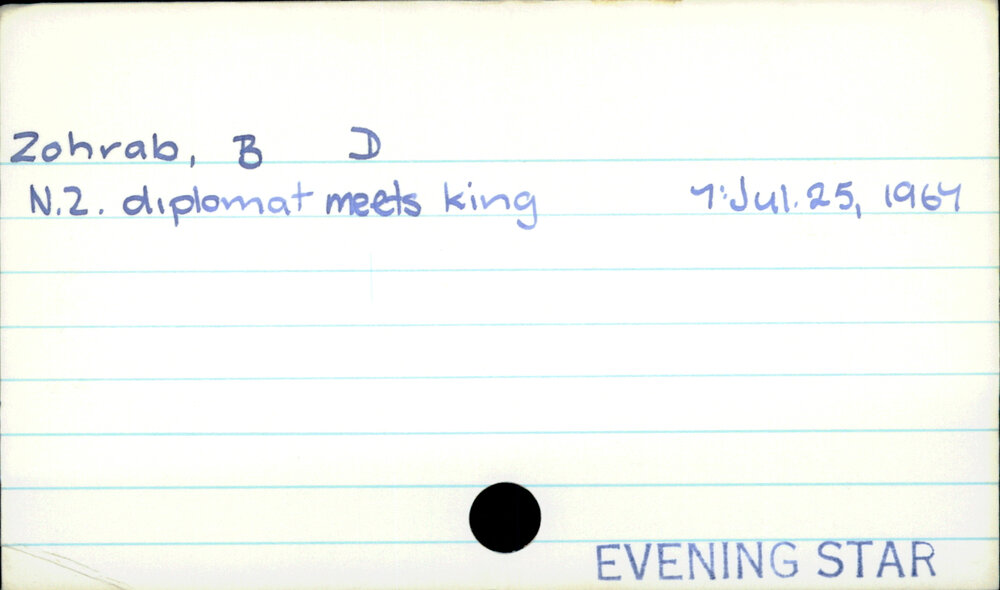 Zohrab, B D
N.Z. diplomat meets king 7:Jul. 25, 1967
EVENING STAR